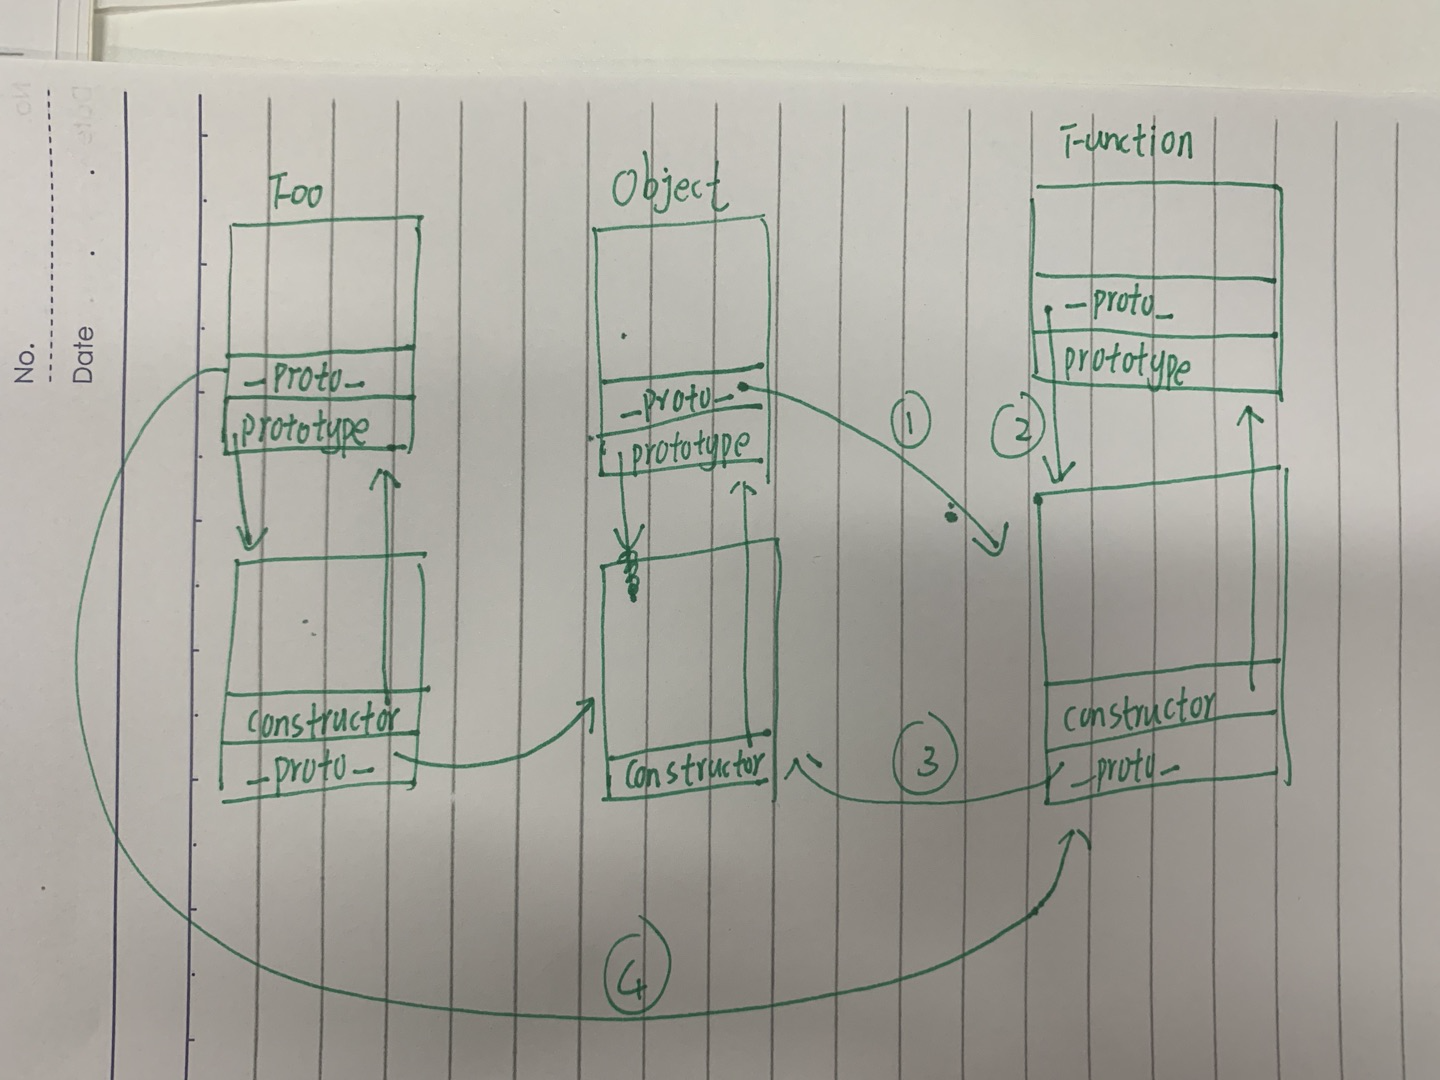 No.
Date
Foo
_Proto_
prototype
constructor
_proto_
Object
_proto_
prototype
constructor
Function
_proto_
prototype
constructor
_proto_
1
2
3
4